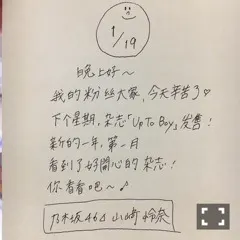 1/19
晚上好～
我的粉丝大家，今天辛苦了♡
下个星期，杂志「UpTo Boy」发售！
新的一年，第一月
看到了好開心的杂志！
你看看吧～♪
乃木坂46 山崎怜奈